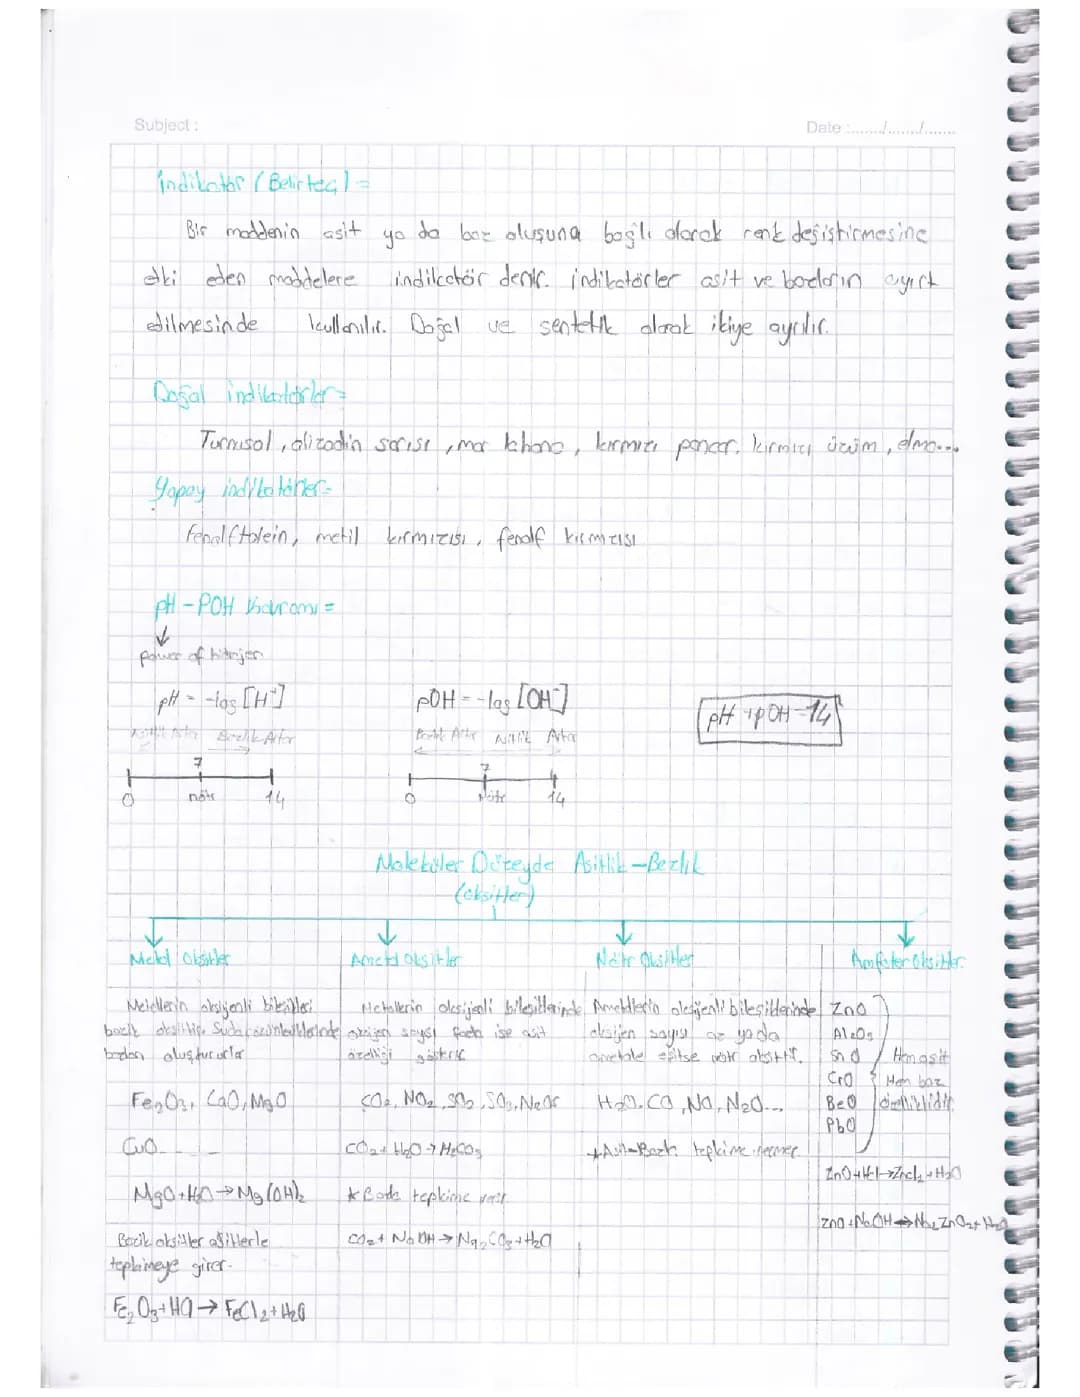 Subject :
Date :......./......./.......
İndikatör (Belirteç) =
Bir maddenin asit ya da baz oluşuna bağlı olarak renk değiştirmesine
etki eden maddelere indikatör denir. İndikatörler asit ve bazların ayırt
edilmesinde kullanılır. Doğal ve sentetik olarak ikiye ayrılır.
Doğal indikatörler=
Turnusol, alizadin sarısı, mor lahana, kırmızı pancar, kırmızı üzüm, elma...
Yapay indikatörler=
Fenolftalein, metil kırmızısı, fenolf kırmızısı
pH - POH Kavramı =
power of hitrojen
pH = -log [H⁺]
pOH = -log [OH⁻]
pH + pOH = 14
Asitlik Artar Bazlık Artar
Bazlık Artar Asitlik Artar
7
7
0 nötr 14
0 Nötr 14
Moleküler Düzeyde Asitlik - Bazlık
(oksitler)
Metal Oksitler
Ametal oksitler
Nötr Oksitler
Amfoter Oksitler
Metallerin oksijenli bileşikleri
bazik oksittir. Suda çözündüklerinde
bazları oluştururlar
Fe₂O₃, CaO, MgO
CuO.....
MgO + H₂O → Mg(OH)₂
Bazik oksitler asitlerle
tepkimeye girer.
Fe₂O₃ + HCl → FeCl₂ + H₂O
Metallerin oksijenli bileşiklerinde
oksijen sayısı fazla ise asit
özelliği gösterir
CO₂, NO₂, SO₂, SO₃, N₂O₅
CO₂ + H₂O → H₂CO₃
* Bazla tepkime verir
CO₂ + NaOH → Na₂CO₃ + H₂O
Ametallerin oksijenli bileşiklerinde
oksijen sayısı az ya da
ametale eşitse nötr oksittir.
H₂O, CO, NO, N₂O...
* Asit-Bazla tepkime vermez
ZnO
Al₂O₃
SnO
CrO
BeO
PbO
Hem asit
Hem baz
özelliklidir
ZnO + HCl → ZnCl₂ + H₂O
ZnO + NaOH → Na₂ZnO₂ + H₂O